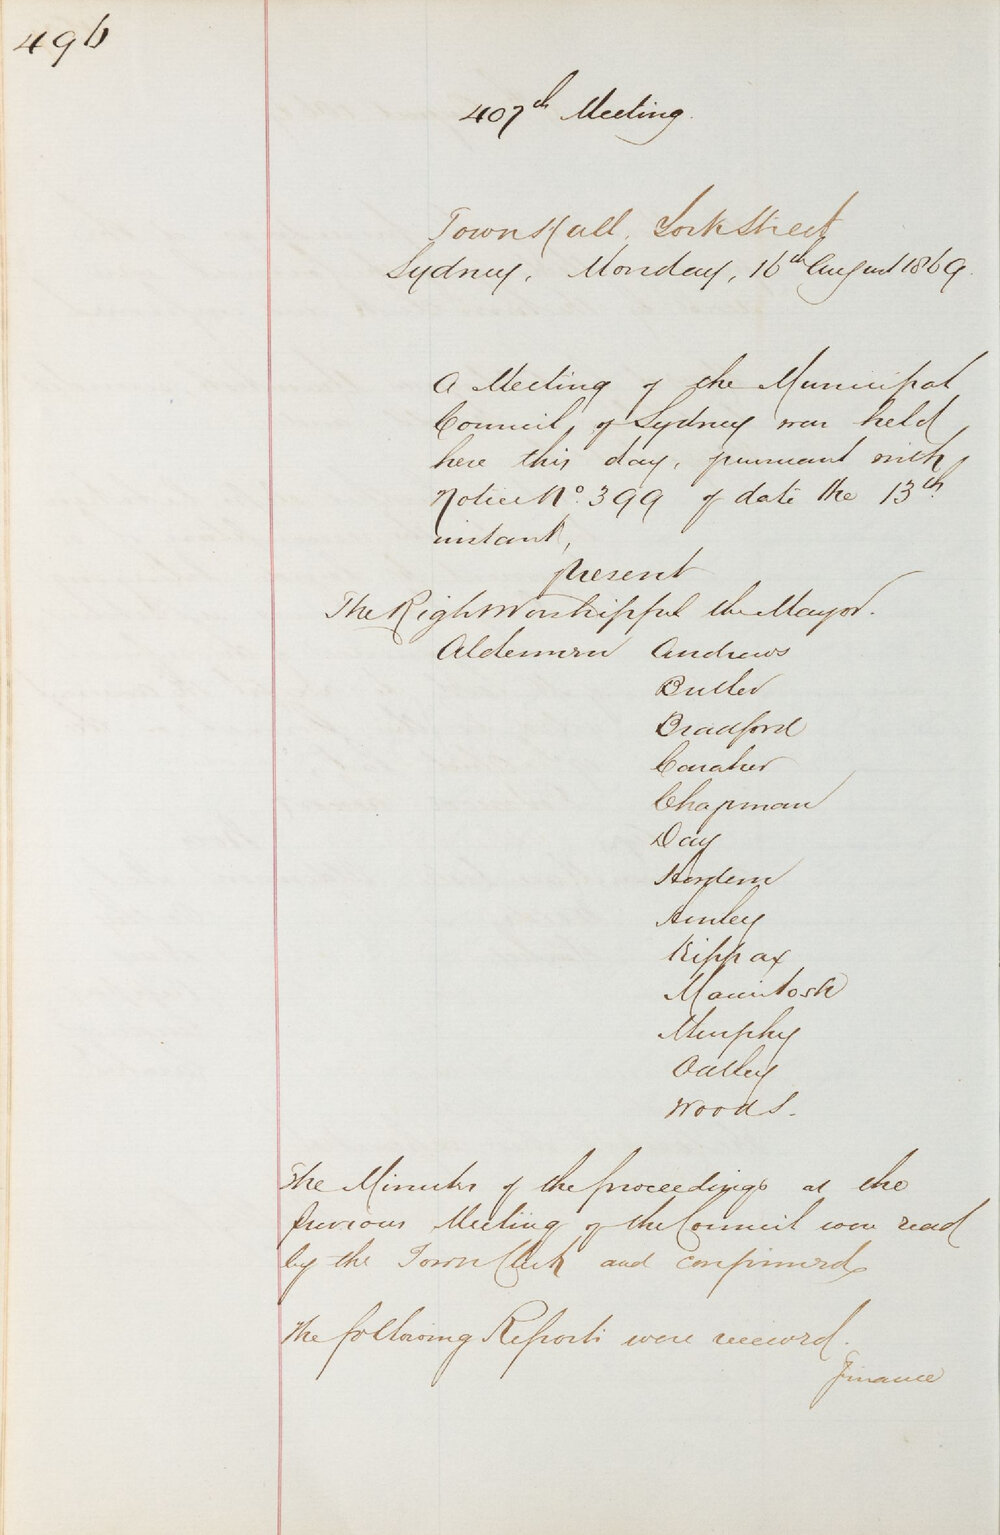 496
407th Meeting.
Town Hall, York Street
Sydney, Monday, 16th August 1869.
A Meeting of the Municipal
Council, of Sydney was held
here this day, pursuant with
Notice No. 399 of date the 13th
instant,
present
The Right Worshipful the Mayor.
Aldermen Andrews
Butler
Bradford
Caraher
Chapman
Day
Hordern
Hurley
Kippax
Macintosh
Murphy
Oatley
Woods.
The Minutes of the proceedings at the
previous Meeting of the Council were read
by the Town Clerk and confirmed.
The following Reports were received.
Finance